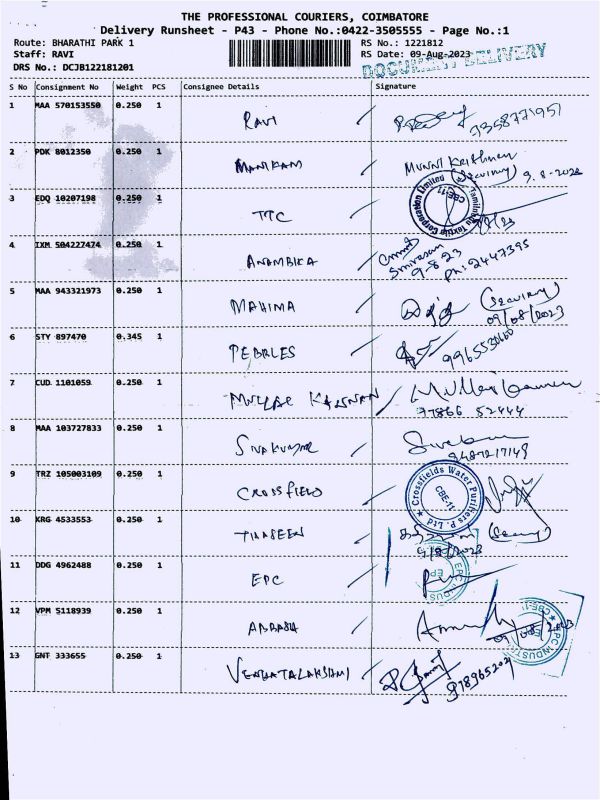 THE PROFESSIONAL COURIERS, COIMBATORE
Delivery Runsheet - P43 - Phone No.:0422-3505555 - Page No.:1
Route: BHARATHI PARK 1 RS No.: 1221812
Staff: RAVI RS Date: 09-Aug-2023
DRS No.: DCJB122181201 DOCUMENT DELIVERY
S No Consignment No Weight PCS Consignee Details Signature
1 MAA 570153550 0.250 1 RAVI
2 PDK 8012350 0.250 1 MANIKAM 9.8-2023
3 EDQ 10207198 0.250 1 TTC Tamilnadu Textile Corporation Limited CBE-11
4 IXM 504227474 0.250 1 ANAMBIKA Srinivasan 9-8-23 ph: 2447395
5 MAA 943321973 0.250 1 MAHIMA 09/08/2023
6 STY 897470 0.345 1 PEBBLES
7 CUD 1101059 0.250 1 77866 52444
8 MAA 103727833 0.250 1 SIVAKUMAR 9487217149
9 TRZ 105003109 0.250 1 CROSSFIELD Crossfields Water Purifiers P. Ltd CBE-11
10 KRG 4533553 0.250 1
11 DDG 4962488 0.250 1 EPC EPC INDUS
12 VPM 5118939 0.250 1 EPC INDUST CBE-11
13 GNT 333655 0.250 1